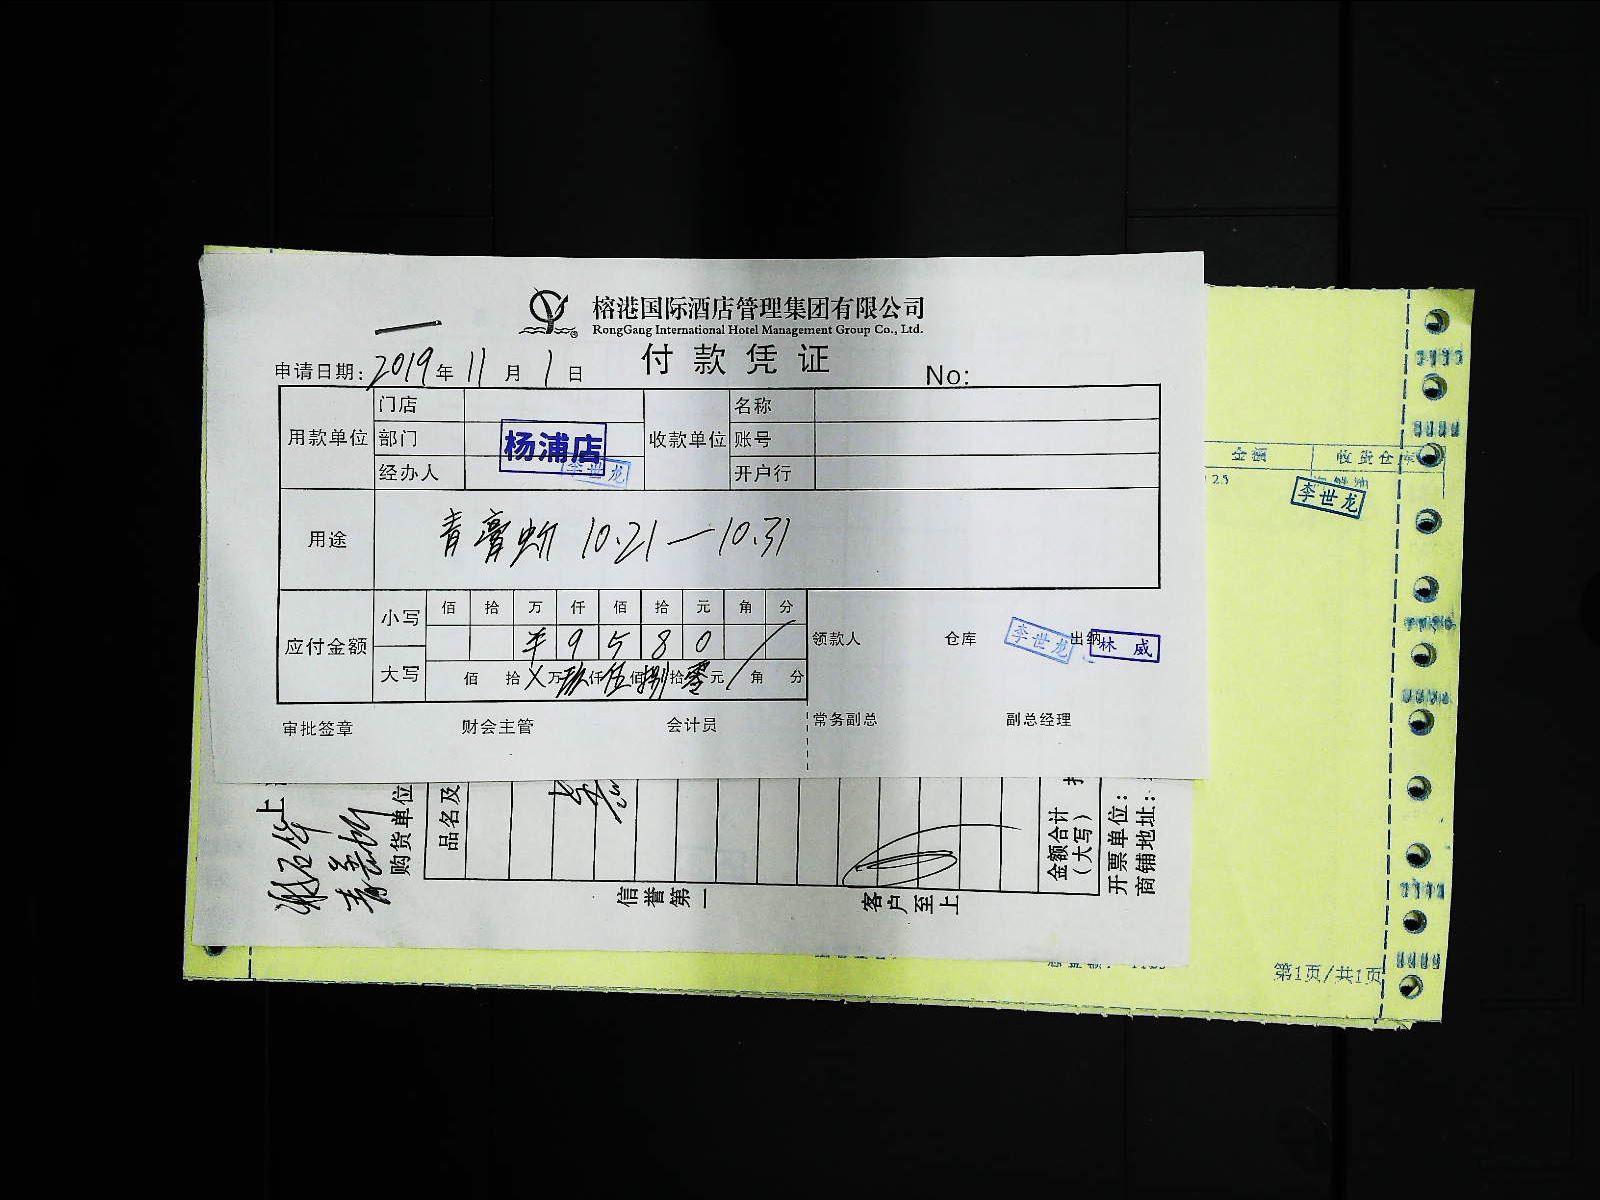 榕港国际酒店管理集团有限公司
RongGang International Hotel Management Group Co., Ltd.
付款凭证
申请日期：2019年11月1日 No:
用款单位 门店 收款单位 名称
部门 杨浦店 账号
经办人 李世龙 开户行
用途 青膏蚧 10.21—10.31
应付金额 小写 佰 拾 万 仟 佰 拾 元 角 分
¥ 9 5 8 0
大写 佰 拾 X 万 玖 仟 伍 佰 捌 拾 零 元 角 分
领款人 仓库 李世龙 出纳 林威
审批签章 财会主管 会计员 常务副总 副总经理
金额 收货仓
李世龙
上
购货单位
品名及
信誉第一
客户至上
金额合计
（大写）
开票单位：
商铺地址：
第1页/共1页